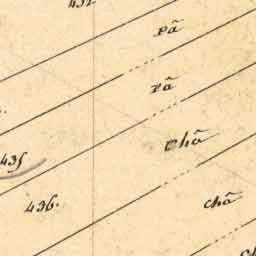 Pâ
Pâ
Châ
435
436.
Châ